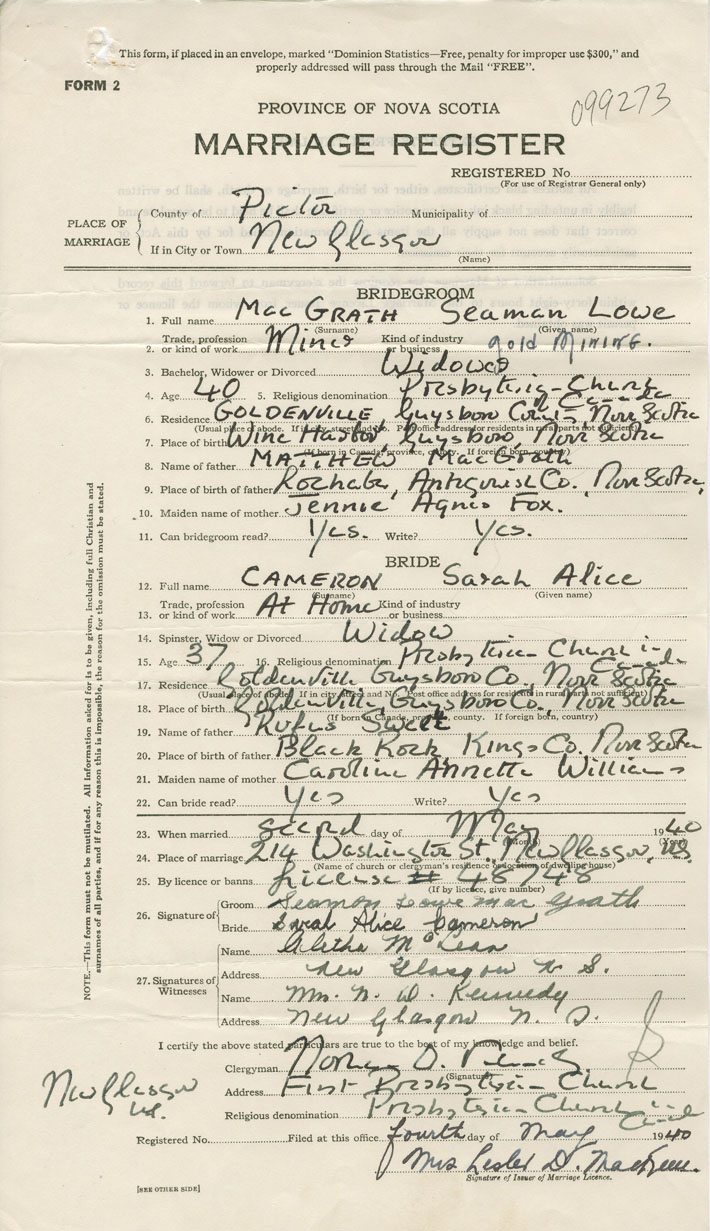 This form, if placed in an envelope, marked "Dominion Statistics—Free, penalty for improper use $300," and
properly addressed will pass through the Mail "FREE".
FORM 2
099273
PROVINCE OF NOVA SCOTIA
MARRIAGE REGISTER
REGISTERED No.
(For use of Registrar General only)
PLACE OF MARRIAGE
County of Pictou Municipality of
If in City or Town New Glasgow
(Name)
BRIDEGROOM
1. Full name MacGRATH Seaman Lowe
(Surname) (Given name)
2. Trade, profession or kind of work Miner Kind of industry or business gold MINING.
3. Bachelor, Widower or Divorced Widower
4. Age 40 5. Religious denomination Presbyterian Church in Canada
6. Residence GOLDENVILLE Guysboro County, Nova Scotia
(Usual place of abode. If in city, street and No. Post office address for residents in rural parts not sufficient)
7. Place of birth Wine Harbor, Guysboro, Nova Scotia
(If born in Canada, province, county. If foreign born, country)
8. Name of father MATTHEW MacGrath
9. Place of birth of father Antigonish Co. Nova Scotia,
10. Maiden name of mother Jennie Agnes Fox.
11. Can bridegroom read? Yes. Write? Yes.
BRIDE
12. Full name CAMERON Sarah Alice
(Surname) (Given name)
13. Trade, profession or kind of work At Home Kind of industry or business
14. Spinster, Widow or Divorced Widow
15. Age 37 16. Religious denomination Presbyterian Church in Canada
17. Residence Goldenville Guysboro Co., Nova Scotia
(Usual place of abode. If in city, street and No. Post office address for residents in rural parts not sufficient)
18. Place of birth Goldenville, Guysboro Co., Nova Scotia
(If born in Canada, province, county. If foreign born, country)
19. Name of father Rufus Sweet
20. Place of birth of father Black Rock Kings Co. Nova Scotia
21. Maiden name of mother Caroline Annetta Williams
22. Can bride read? Yes Write? Yes
23. When married second day of May 1940
24. Place of marriage 214 Washington St., New Glasgow, N.S.
(Name of church or clergyman's residence or location of dwelling house)
25. By licence or banns License # 48748
(If by licence, give number)
26. Signature of
Groom Seamon Lowe mac Grath
Bride Sarah Alice Cameron
27. Signatures of Witnesses
Name Aletha McLean
Address New Glasgow N S.
Name Mrs. N. D. Kennedy
Address New Glasgow N. S.
I certify the above stated particulars are true to the best of my knowledge and belief.
Clergyman Norman D.
(Signature)
Address First Presbyterian Church
New Glasgow
N.S.
Religious denomination Presbyterian Church in Canada
Registered No. Filed at this office fourth day of May 1940
Mrs Lester D.
Signature of Issuer of Marriage Licence.
[SEE OTHER SIDE]
NOTE.—This form must not be mutilated. All Information asked for is to be given, including full Christian and
surnames of all parties, and if for any reason this is impossible, the reason for the omission must be stated.